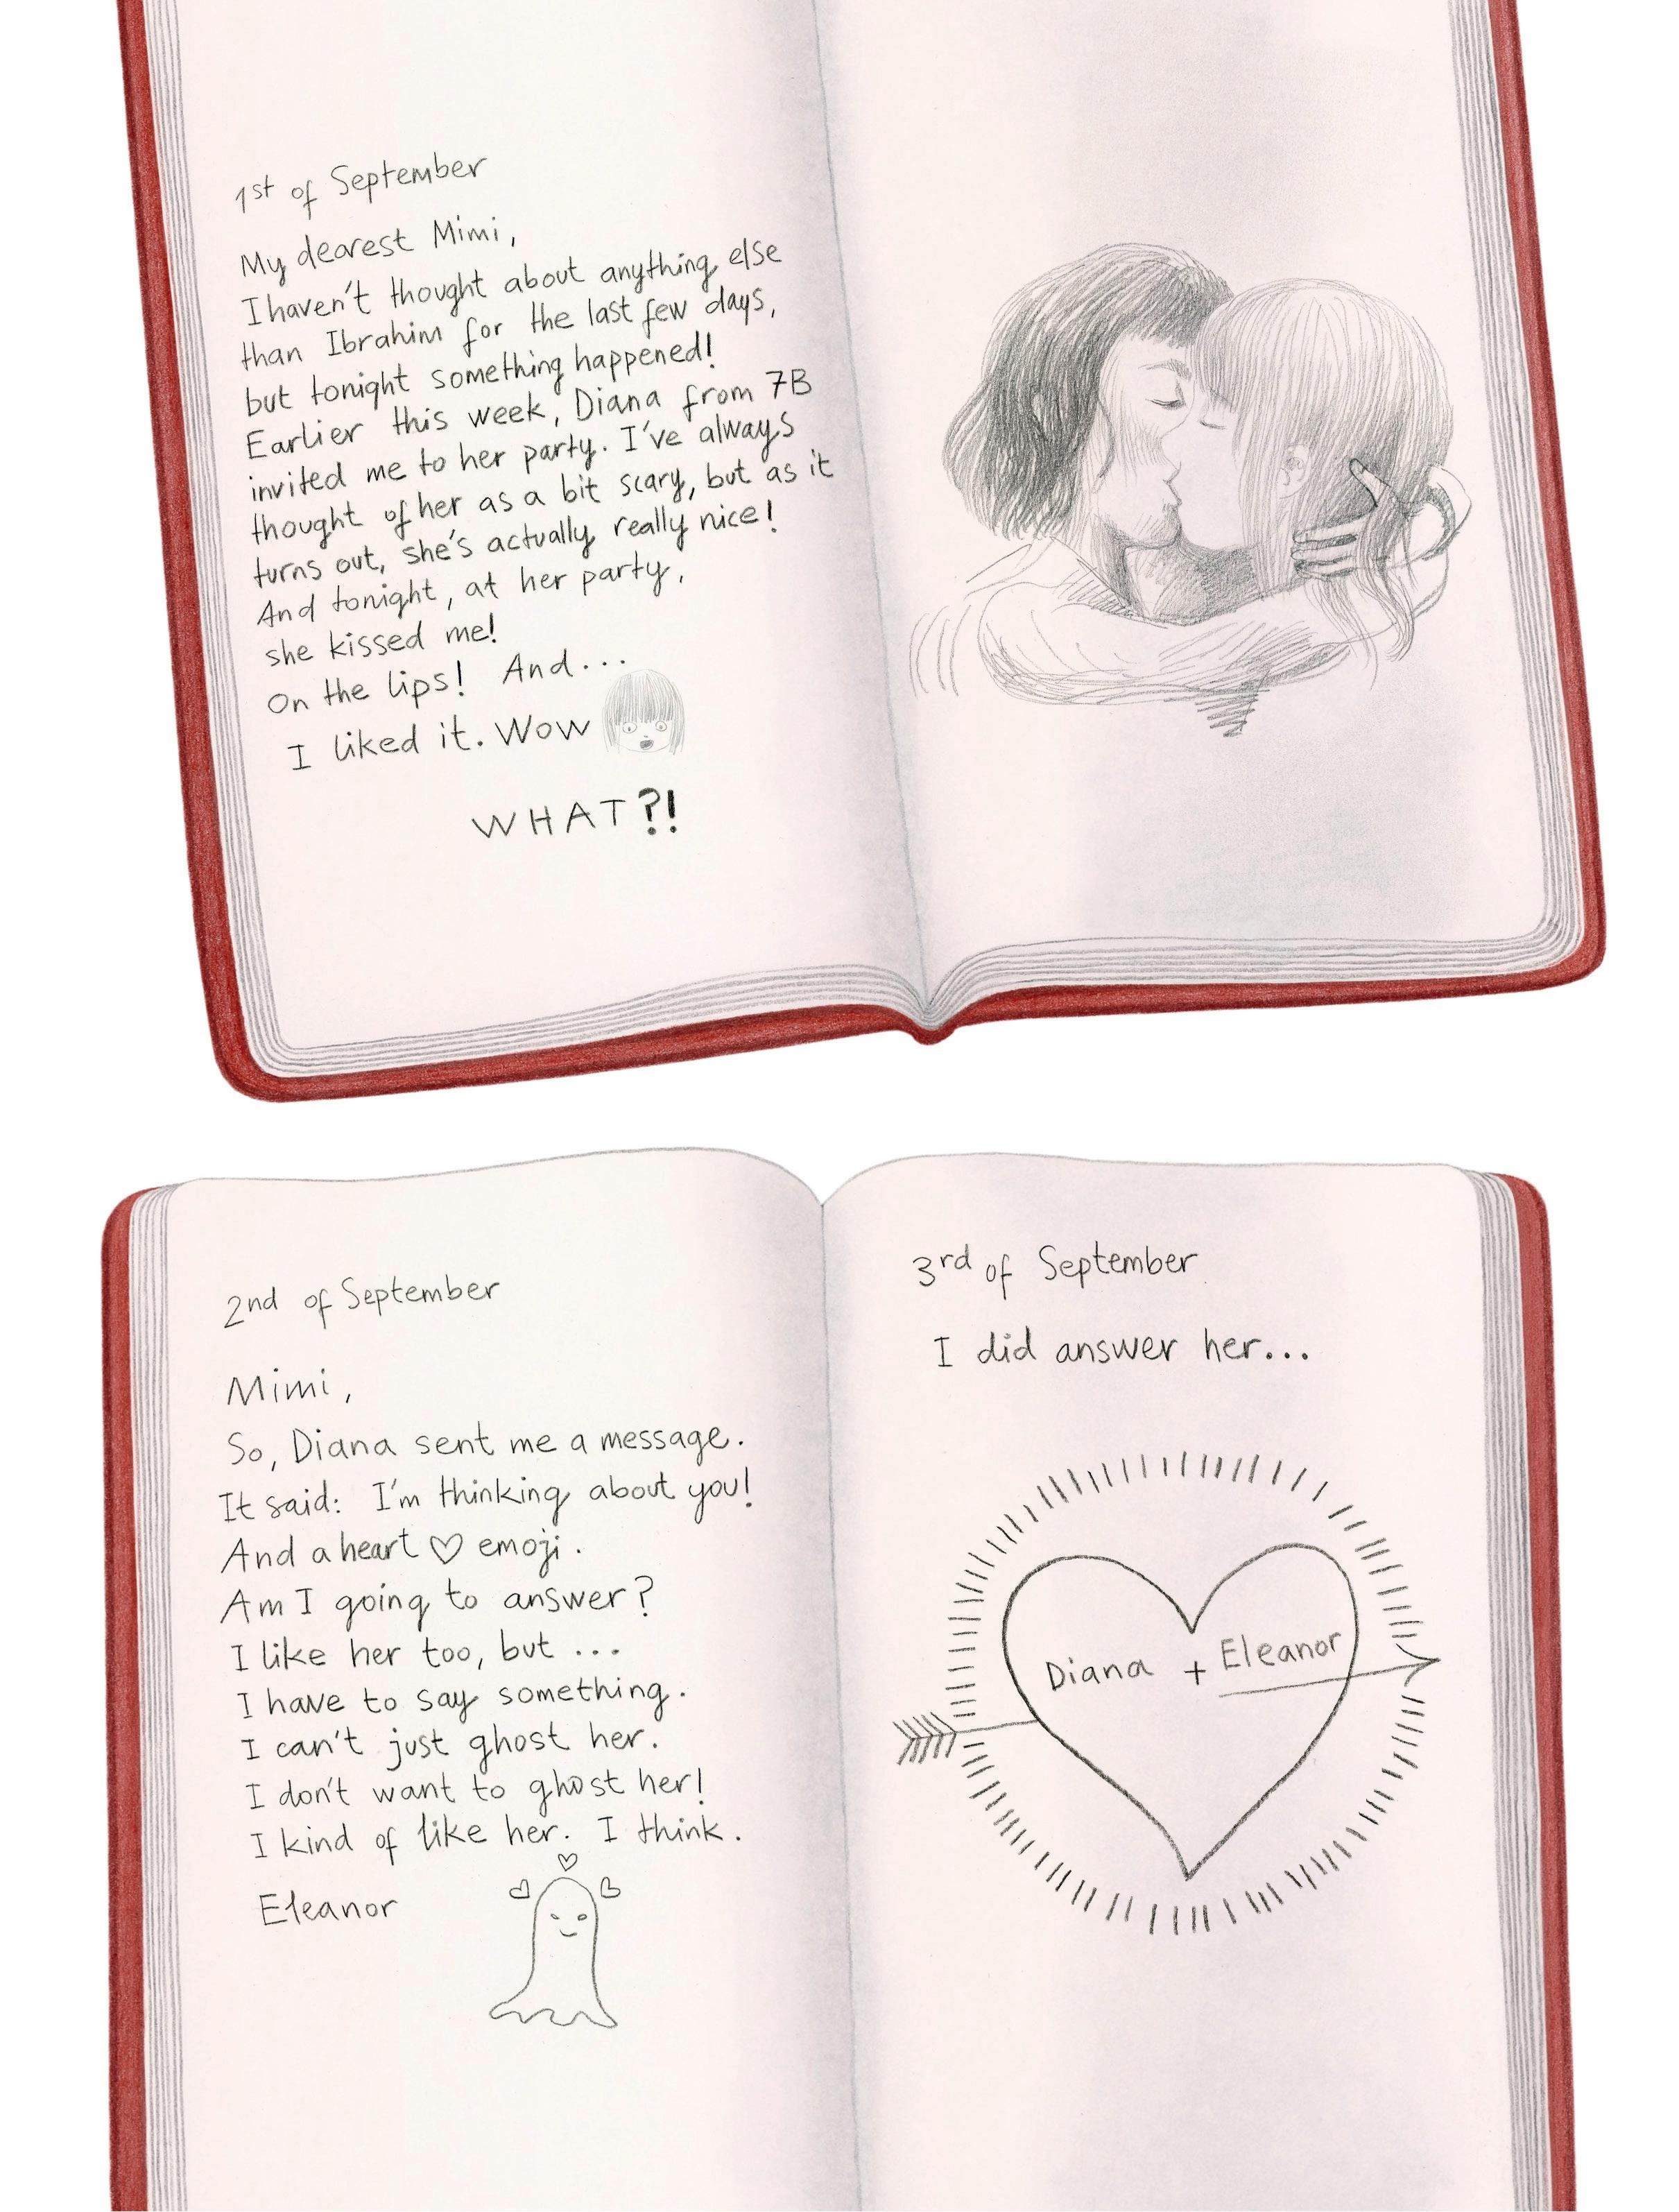 1st of September
My dearest Mimi,
I haven't thought about anything else
than Ibrahim for the last few days,
but tonight something happened!
Earlier this week, Diana from 7B
invited me to her party. I've always
thought of her as a bit scary, but as it
turns out, she's actually really nice!
And tonight, at her party,
she kissed me!
On the lips! And...
I liked it. Wow
WHAT?!
2nd of September
Mimi,
So, Diana sent me a message.
It said: I'm thinking about you!
And a heart ♡ emoji.
Am I going to answer?
I like her too, but ...
I have to say something.
I can't just ghost her.
I don't want to ghost her!
I kind of like her. I think.
Eleanor
3rd of September
I did answer her...
Diana + Eleanor